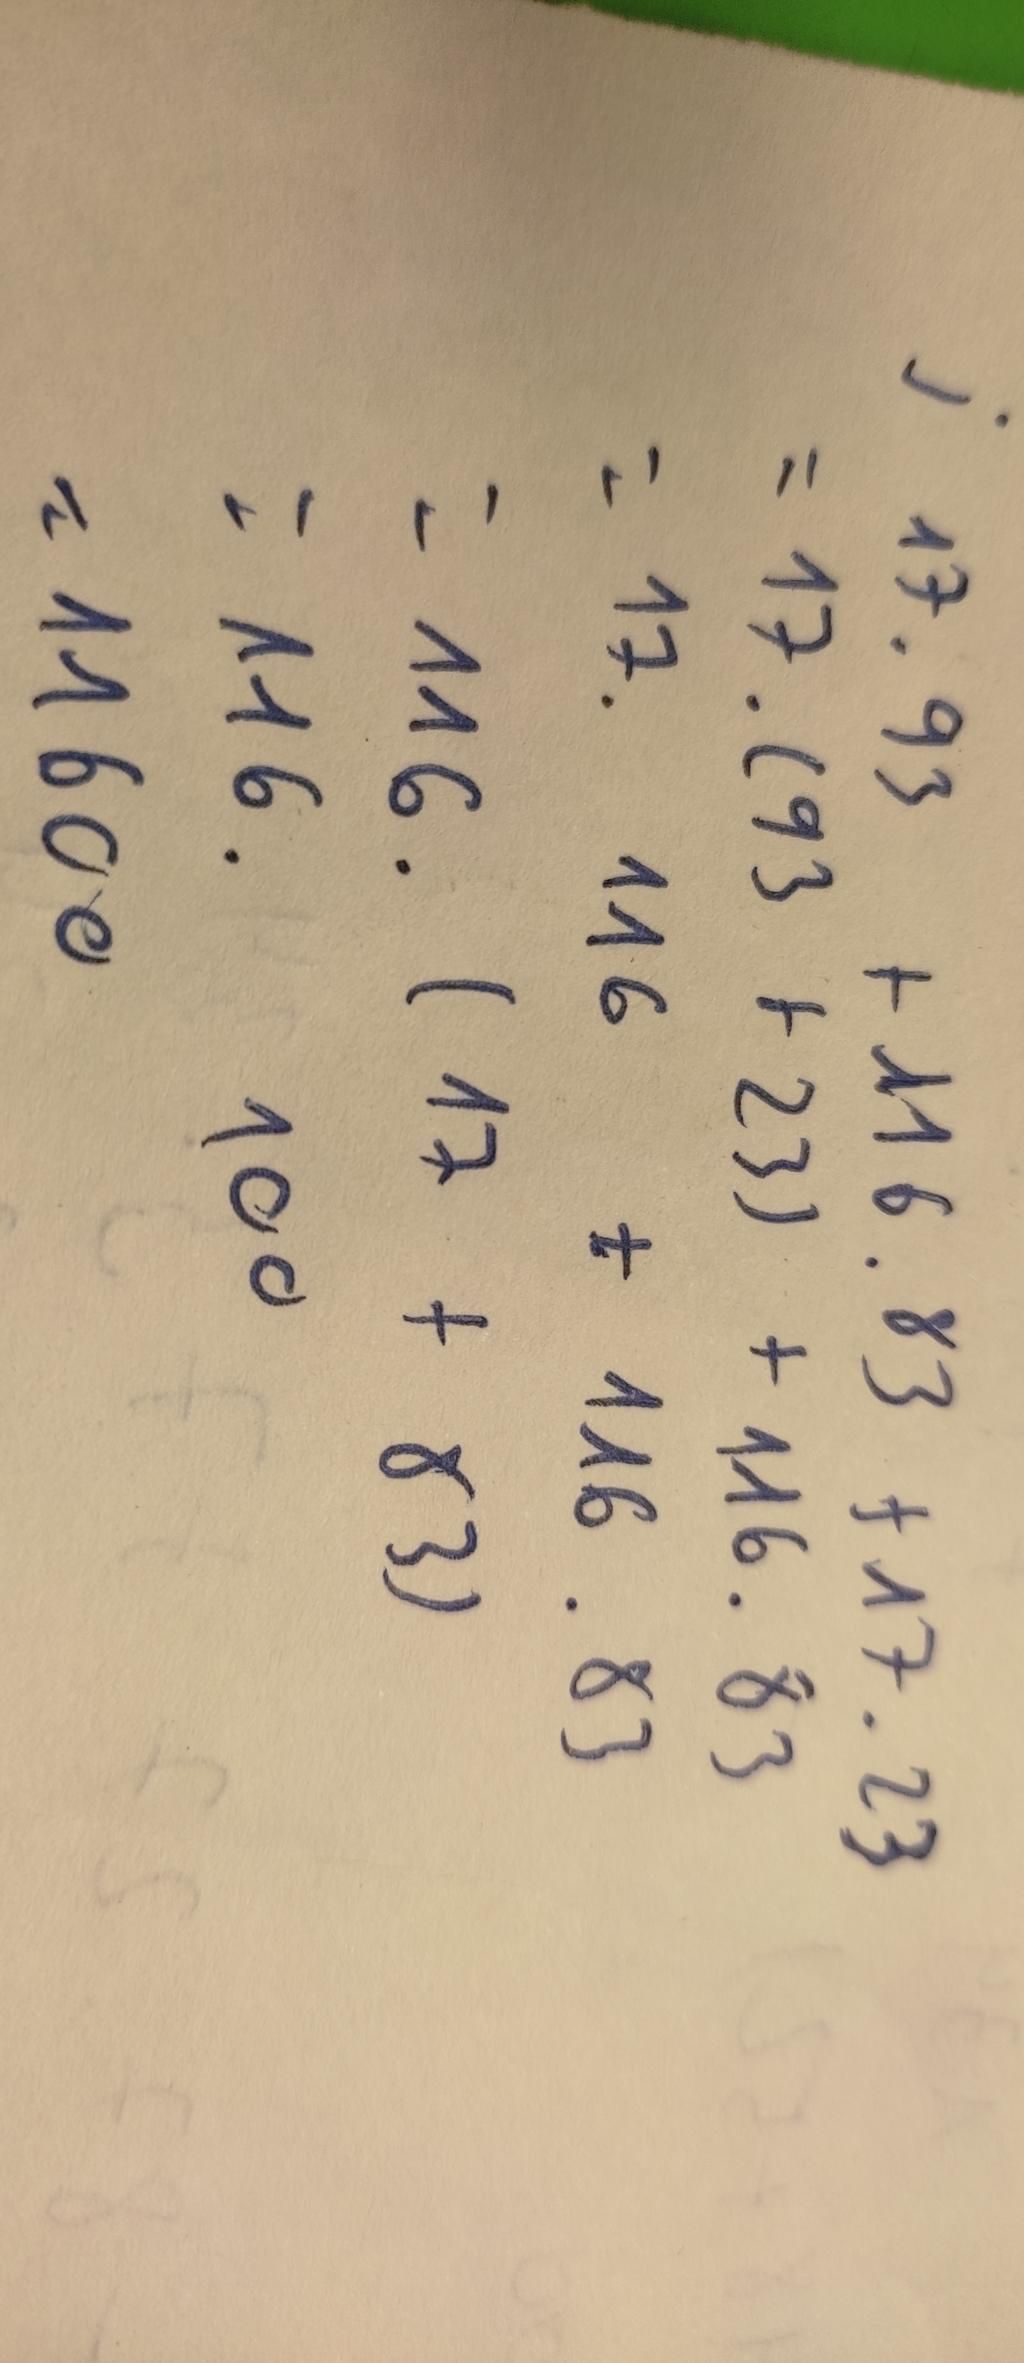 j. 17 . 93 + 116 . 83 + 17 . 23
= 17 . (93 + 23) + 116 . 83
= 17 . 116 + 116 . 83
= 116 . (17 + 83)
= 116 . 100
= 11600